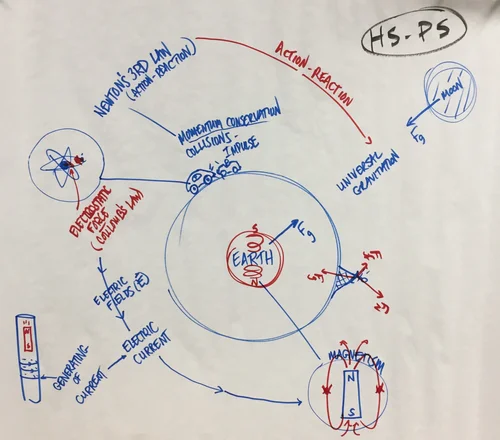 HS-PS
NEWTON'S 3RD LAW
(ACTION-REACTION)
ACTION-REACTION
MOON
Fg
MOMENTUM CONSERVATION
COLLISIONS-
IMPULSE
UNIVERSAL
GRAVITATION
ELECTROSTATIC
FORCE
(COULOMB'S LAW)
S
EARTH
N
Fg
ELECTRIC
FIELDS (E)
ELECTRIC
CURRENT
GENERATING
OF
CURRENT
MAGNETISM
N
S